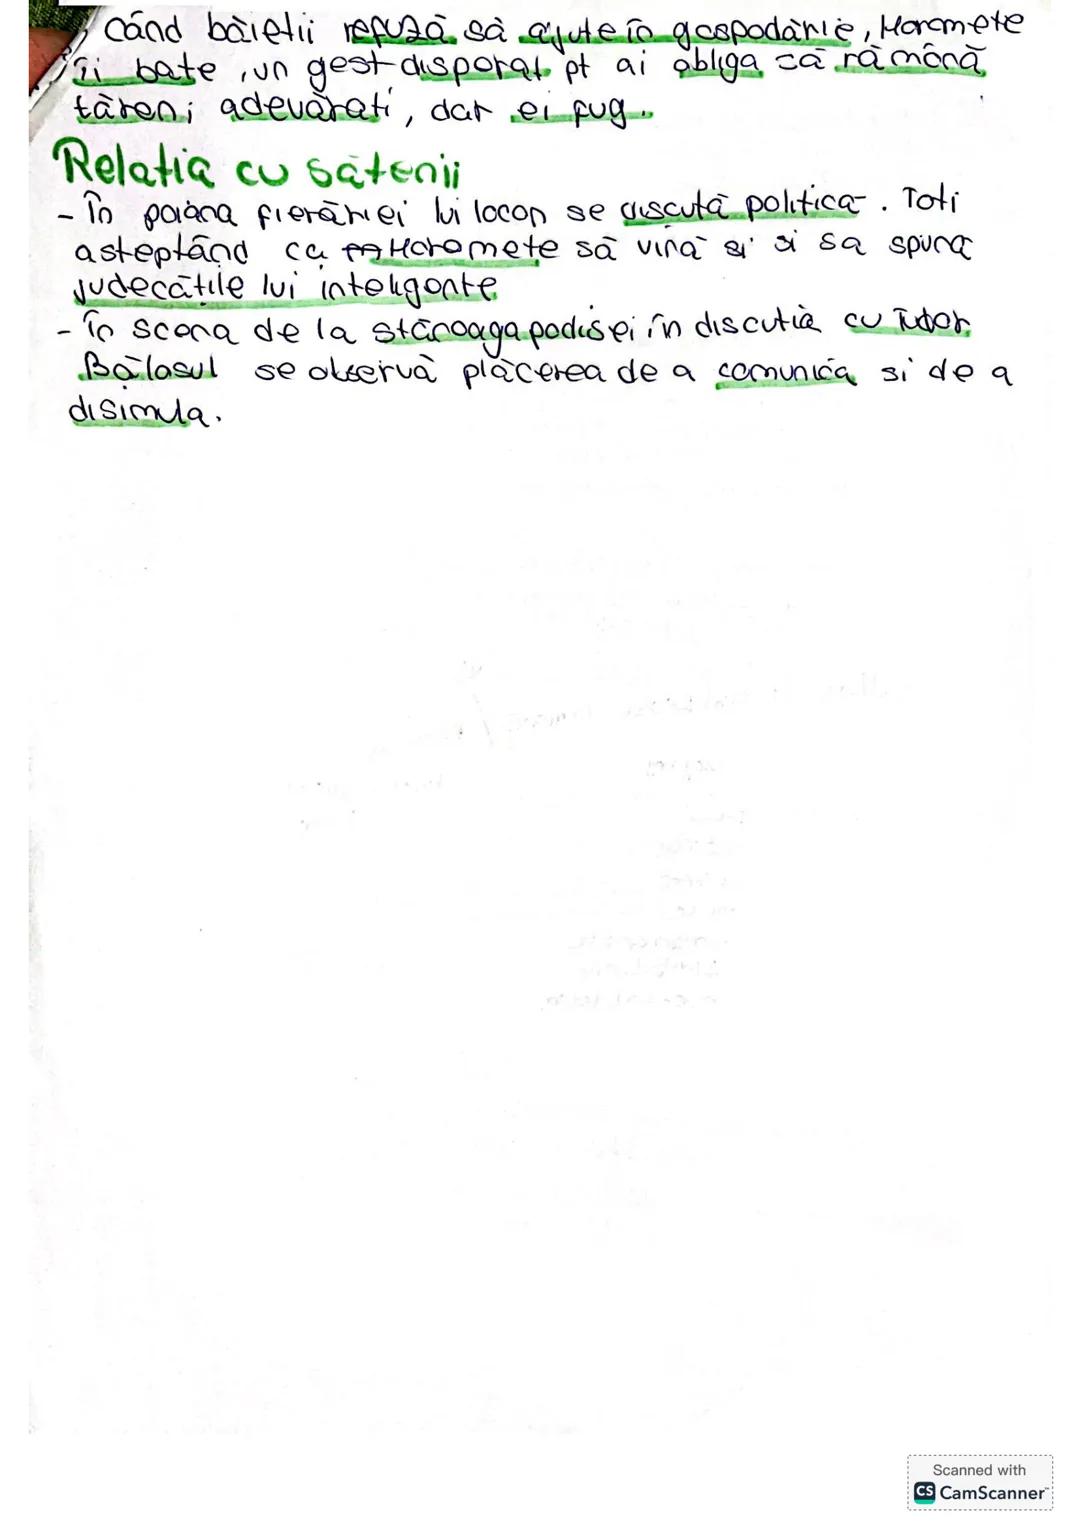 când băieții refuză să ajute în gospodărie, Moromete
îi bate, un gest disperat pt ai obliga că rămână
tăreni adevărati, dar ei fug.
Relatia cu sătenii
- În poiana fierăriei lui Iocan se discută politica. Toti
asteptând ca Moromete să vină si si sa spuna
judecătile lui inteligente
- În scena de la stănoaga podistei în discutia cu Tudor
Bălosul se observă plăcerea de a comunica si de a
disimula.
Scanned with
CS CamScanner